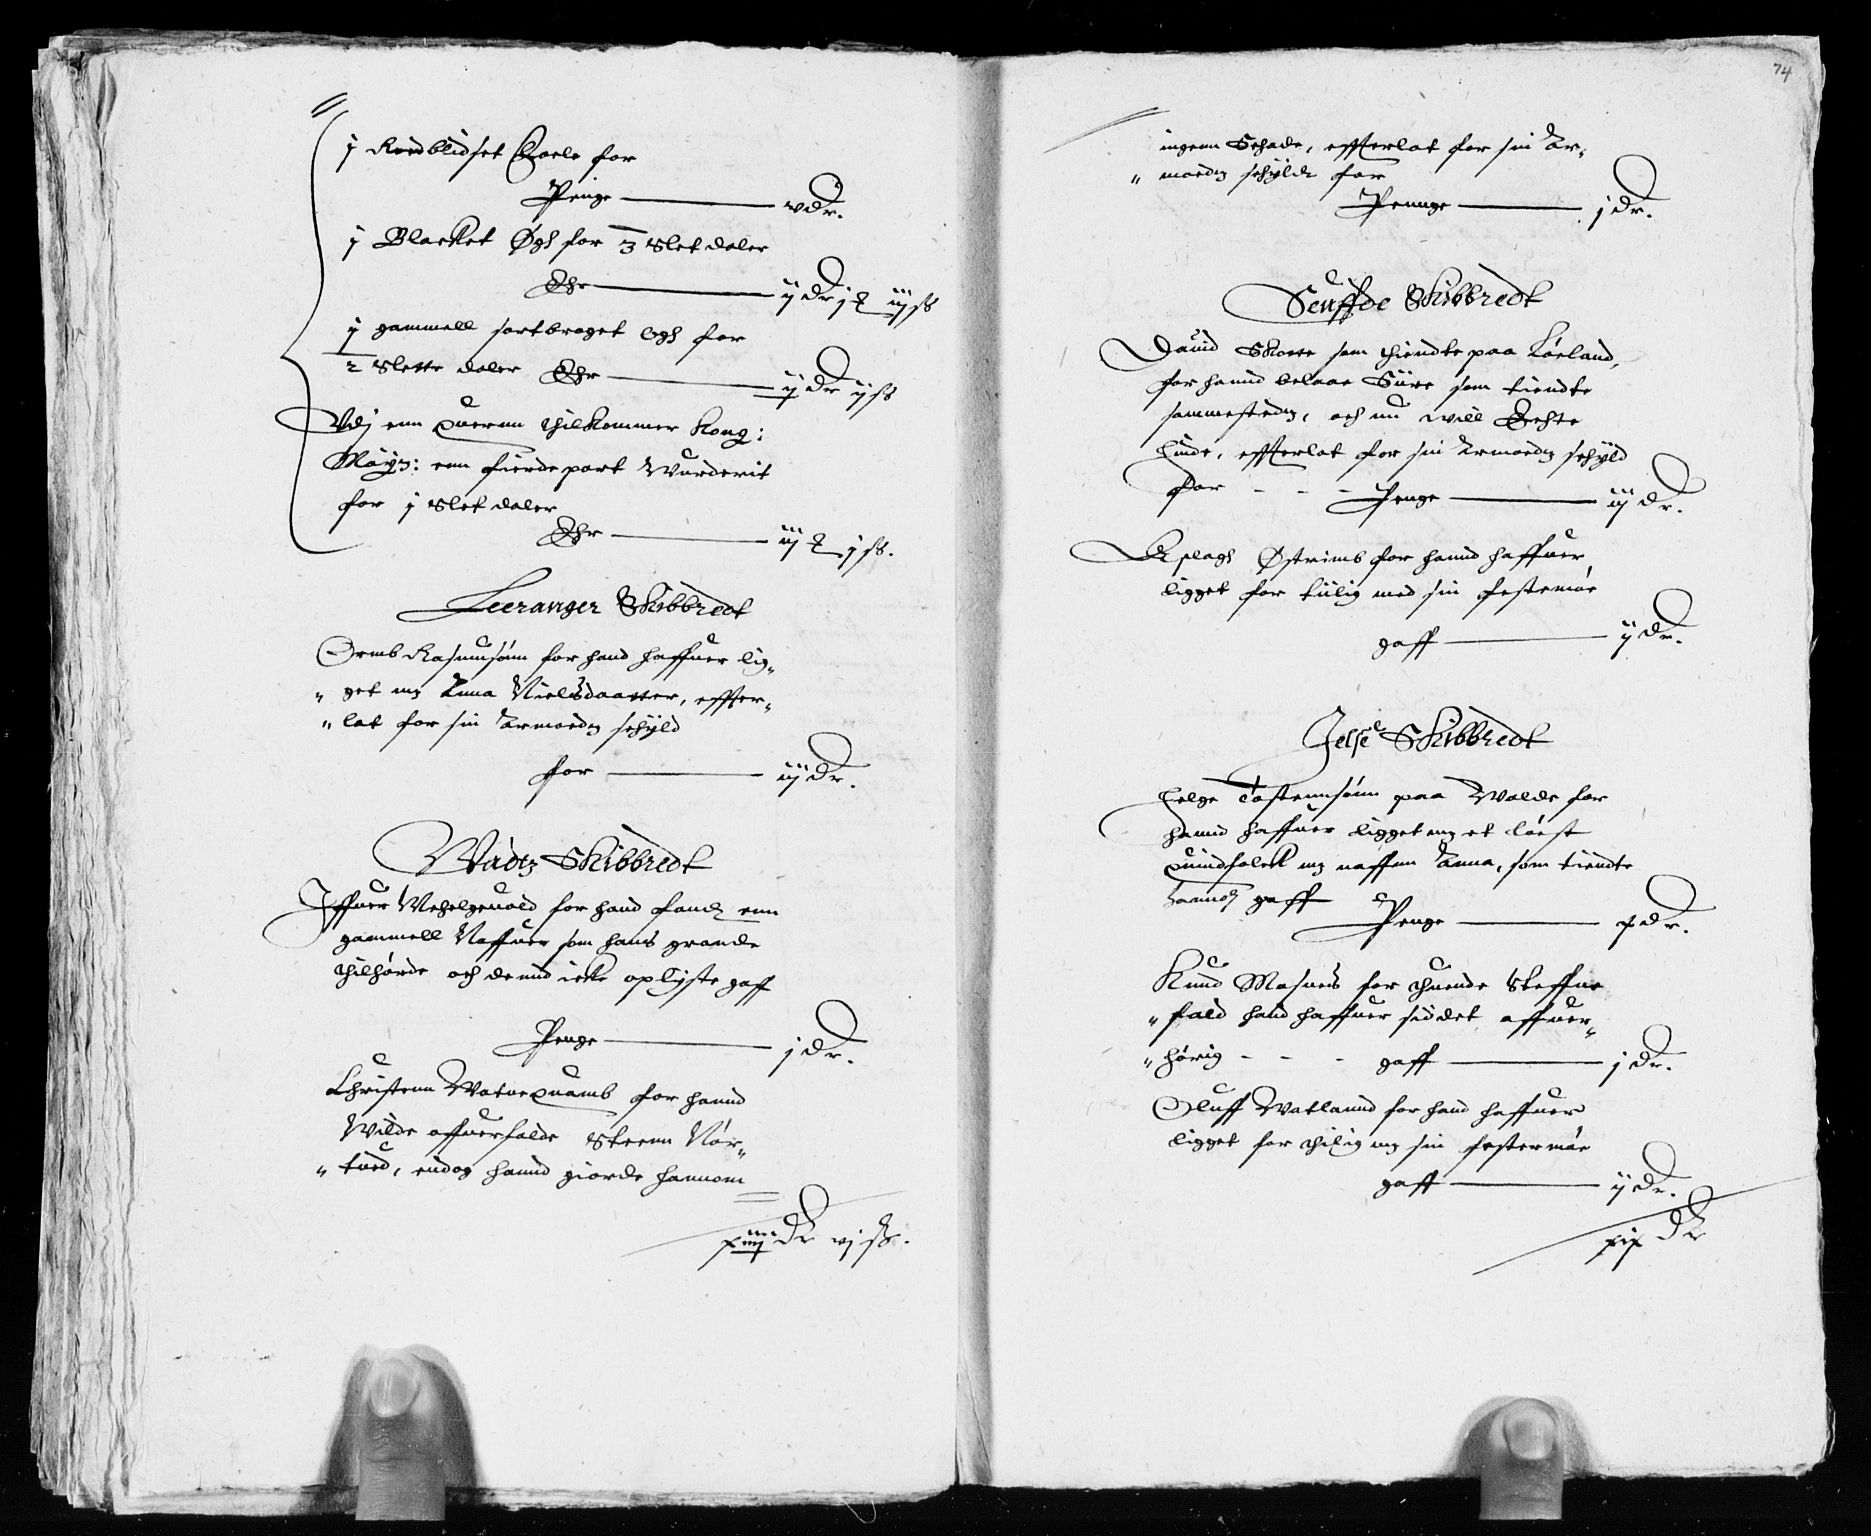 j Rødblidset Foele for
Penge — v dr.
j Blacket Øgh for 3 Slet daler
Er — ij dr j ₰ iij ß
j gammell sortbroget Ogh for
2 Slette daler Er — ij dr ij ß
Vdj enn quernn thilkommer Kong:
Mayt: enn fierde part Wurderit
for j Slet daler
Er — iij ₰ j ß.
Leeranger Skibbredt
Ormb Rasmusønn for hand haffuer lig-
" get mz Anna Nielsdaatter, effter-
" lat for sin Armoedz schyld
for — iij dr.
Wadtz Skibbredt
Iffuer for hand fandt enn
gammell Naffuer som hans grande
thilhørde och dennd icke oplyste gaff
Penge — j dr.
Christenn Watnequamb for hannd
Wilde offuerfalde Steenn Nør-
" tued, endog hannd giorde hannom
xiiij dr vj ß.
74
ingenn Schade, effterlat for sin Ar-
" moedz schyldt for
Pennge — j dr.
Seuffde Skibbredt
Dauid Skotte som thiendte paa Løeland,
for hannd belaae Siire som tiendte
sammestedtz, och nu will Echte
hinde, effterlat for sin Armoedz schyld
for - - - Penge — iij dr.
Østrimb for hannd haffuer
ligget for tiilig med sin festemøe
gaff — ij dr.
Jelse Skibbredt
Helge Tostennsønn paa Wolde for
hannd haffuer ligget mz et løest
quindfolck mz naffnn Anna, som tiendte
gaff Penge — x dr.
Knud for thuende Steffne
" fald hand haffuer siddet offuer-
" hørig - - - gaff — j dr.
Oluff Watlannd for hand haffuer
ligget for thilig mz sin festermøe
gaff — ij dr.
xix dr